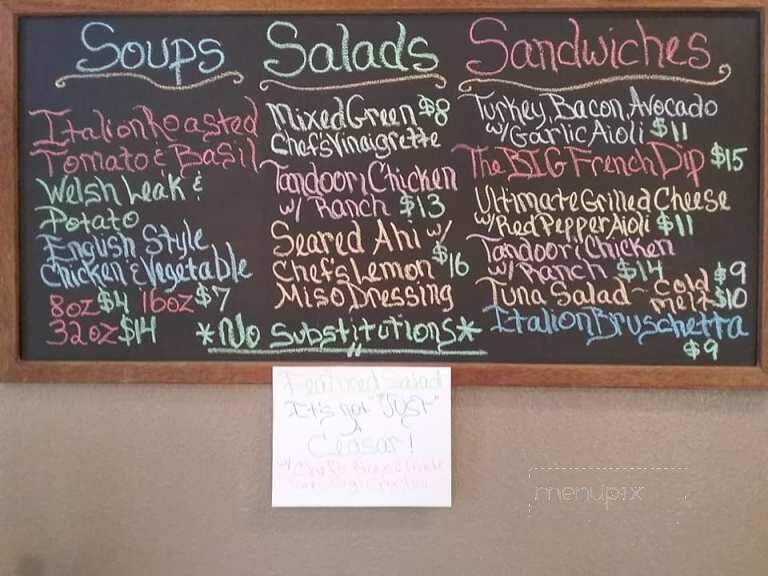 Soups
Italion Roasted
Tomato & Basil
Welsh Leak &
Potato
English Style
Chicken & Vegetable
8oz $4 16oz $7
32oz $14
Salads
Mixed Green $8
Chef's Vinaigrette
Tandoori Chicken
w/ Ranch $13
Seared Ahi w/
Chef's Lemon $16
Miso Dressing
*No Substitutions*
Sandwiches
Turkey, Bacon, Avocado
w/ Garlic Aioli $11
The BIG French Dip $15
Ultimate Grilled Cheese
w/ Red Pepper Aioli $11
Tandoori Chicken
w/ Ranch $14
Tuna Salad ~ Cold $9
melt $10
Italion Bruschetta
$9
Featured Salad
It's not "Just"
A
Ceasar!
menupix